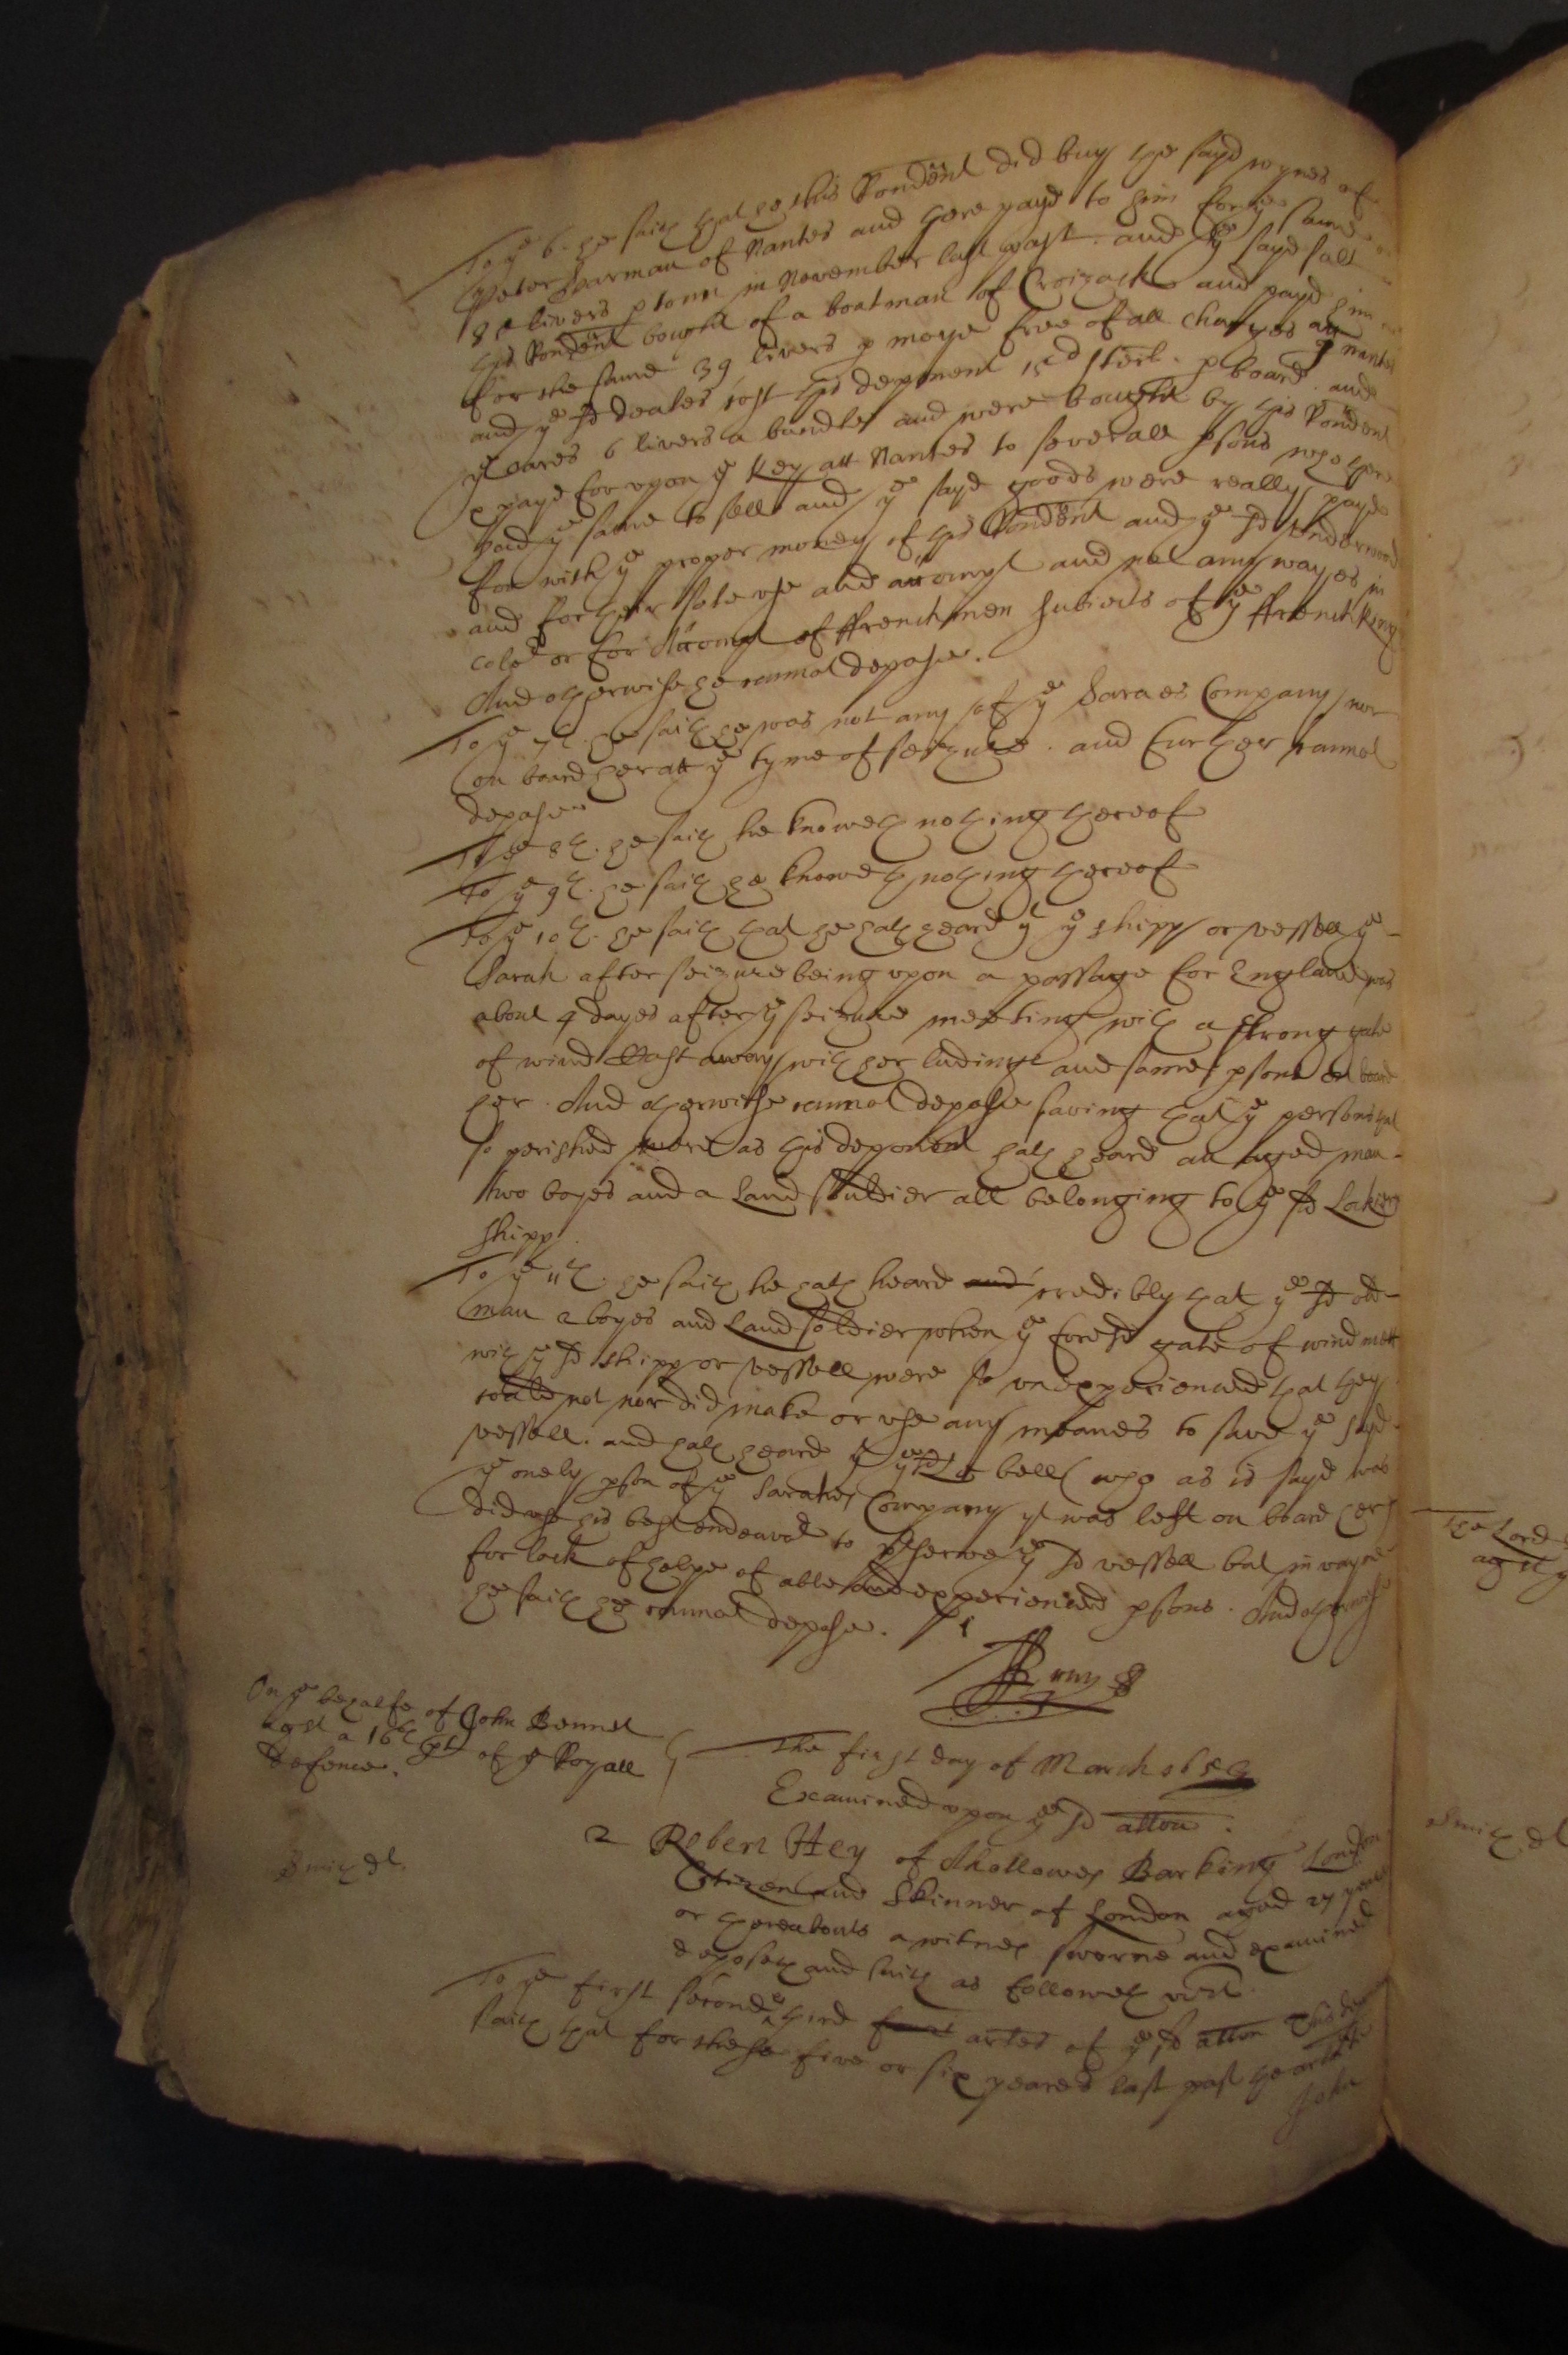 To ye 6. he saith that he this Rondent did buy the sayd wynes of
Peter Sharman of Nantes and there payd to him for ye same
livers p tonn in November last past. and ye sayd salt
this Rondent bought of a boatman of Croizack and payd him
for the same 39 livers p moye free of all charges att Nantes
and ye sd deales cost this deponent 15d sterl. p board. and
ye oares 6 livers a bundle and were bought by this Rondent
& payd for upon ye Key att Nantes to severall psons who there
had ye same to sell and ye sayd goods were really payd
for with ye proper money of this Rondent and ye sd Underwood
and for their sole use and accompt and not any wayes in
color or for Accompt of ffrenchmen subiects of ye ffrench King
And otherwise he cannot depose.
To ye 7th. he saith he was not any of ye Saraes Company nor
on board her att ye tyme of seizure. and further cannot
depose
To ye 8th. he saith he knoweth nothing thereof
To ye 9th. he saith he knoweth nothing thereof
To ye 10th. he saith that he hath heard yt ye shipp or vessell ye
Sarah after seizure being upon a passage for England was
about 4 dayes after ye seizure meeting with a strong gale
of wind Cast away with her lading and some psons on board
her. And otherwise cannot depose saving that ye persons that
so perished were as this deponent hath heard an aged man
two boyes and a Land souldier all belonging to ye sd
shipp.
To ye 11th. he saith he hath heard and credibly that ye sd old
man 2 boyes and Land soldier when ye foresd gale of wind mett
with ye sd shipp or vessell were so unexperienced that they
could not nor did make or use any meanes to save ye sayd
vessell. and hath heard yt ye sd bell who as is sayd was
ye onely pson of ye Sarahes Company yt was left on board her
did use his best endeavor to pserve ye sd vessell but in vayne
for lack of helpe of able and experienced psons. And otherwise
he saith he cannot depose.
On ye behalfe of John Bennet
agst a 16th pt of ye Royall
defence.
The first day of March 165
Examined upon ye sd allon.
Smith dt.
2 Robert Hey of Ahallowes Barking London
Citizen and Skinner of London aged 27 yeares
or thereabouts a witnes sworne and examined
deposeth and saith as followeth vizt.
To ye first second & third artes of ye sd allon this dept
saith that for these five or six yeares last past he
John
The Lord
agst
Smith dt